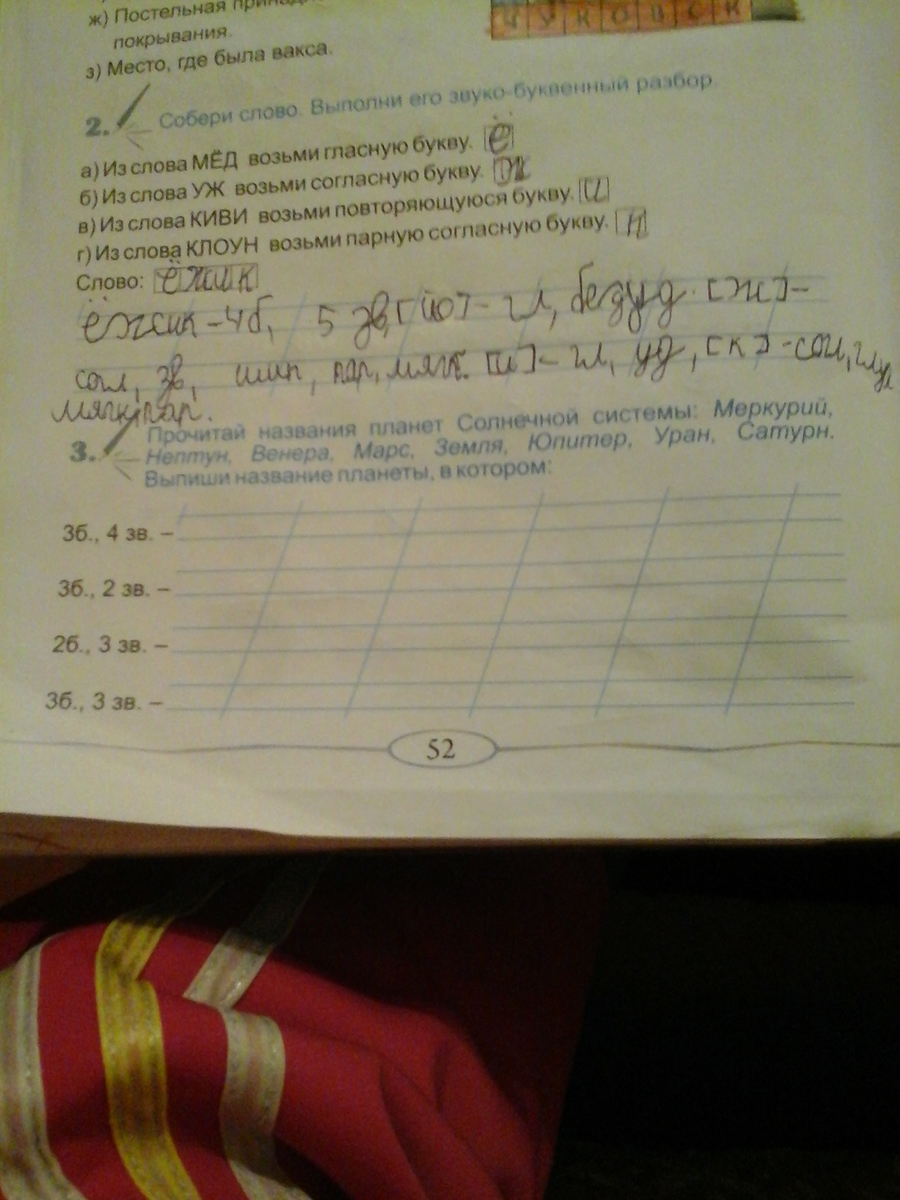 ж) Постельная
покрывания.
з) Место, где была вакса.
ЧУКОВСК
2. Собери слово. Выполни его звуко-буквенный разбор.
а) Из слова МЁД возьми гласную букву. ё
б) Из слова УЖ возьми согласную букву. ж
в) Из слова КИВИ возьми повторяющуюся букву. и
г) Из слова КЛОУН возьми парную согласную букву.
Слово: ёжик
ёжик - 4б, 5 зв, [йо] - гл, безуд. [ж] -
согл, зв, шип, пар, мягк. [и] - гл, уд, [к] - согл, глух
мягк, пар.
3. Прочитай названия планет Солнечной системы: Меркурий,
Нептун, Венера, Марс, Земля, Юпитер, Уран, Сатурн.
Выпиши название планеты, в котором:
3б., 4 зв. –
3б., 2 зв. –
2б., 3 зв. –
3б., 3 зв. –
52